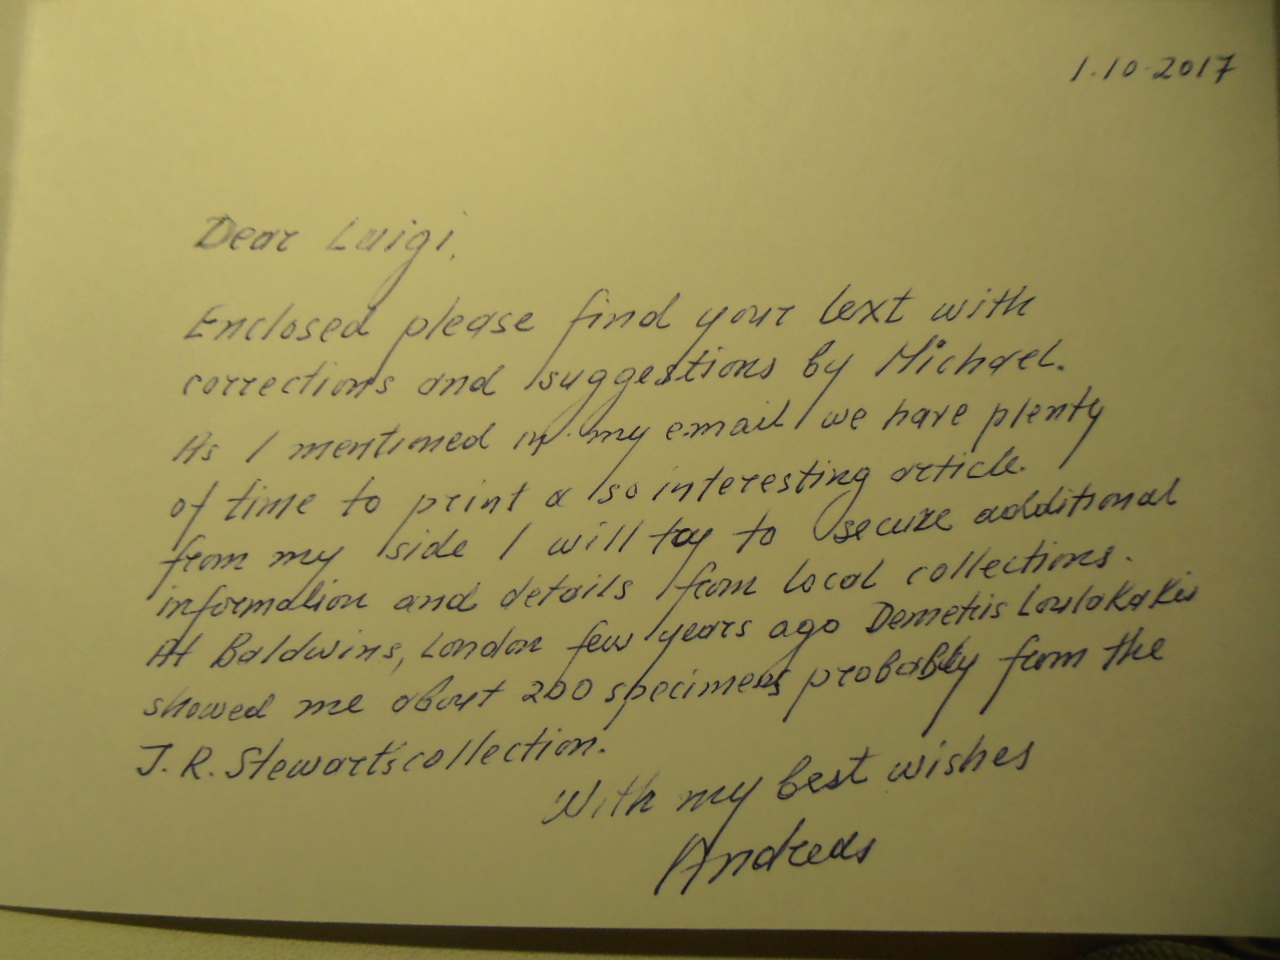 1.10.2017
Dear Luigi,
Enclosed please find your text with
corrections and suggestions by Michael.
As I mentioned in my email we have plenty
of time to print a so interesting article.
from my side I will try to secure additional
information and details from local collections.
At Baldwins, London few years ago Demetris Loulakakis
showed me about 200 specimens probably from the
J.R. Stewart's collection.
With my best wishes
Andreas